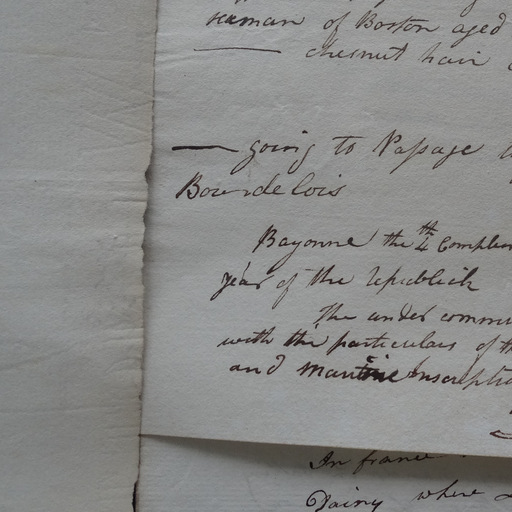 seaman of Boston aged
chesnut hair
— going to Passage
Bourdelois
Bayonne the 4th Complem
year of the republick
The under commi
with the particulars of th
and maritime Inscriptio
In france
Dainy where